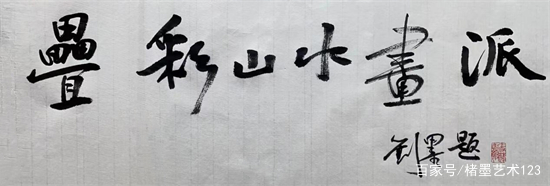 疊彩山水畫派
劍墨题
百家号/楮墨艺术123